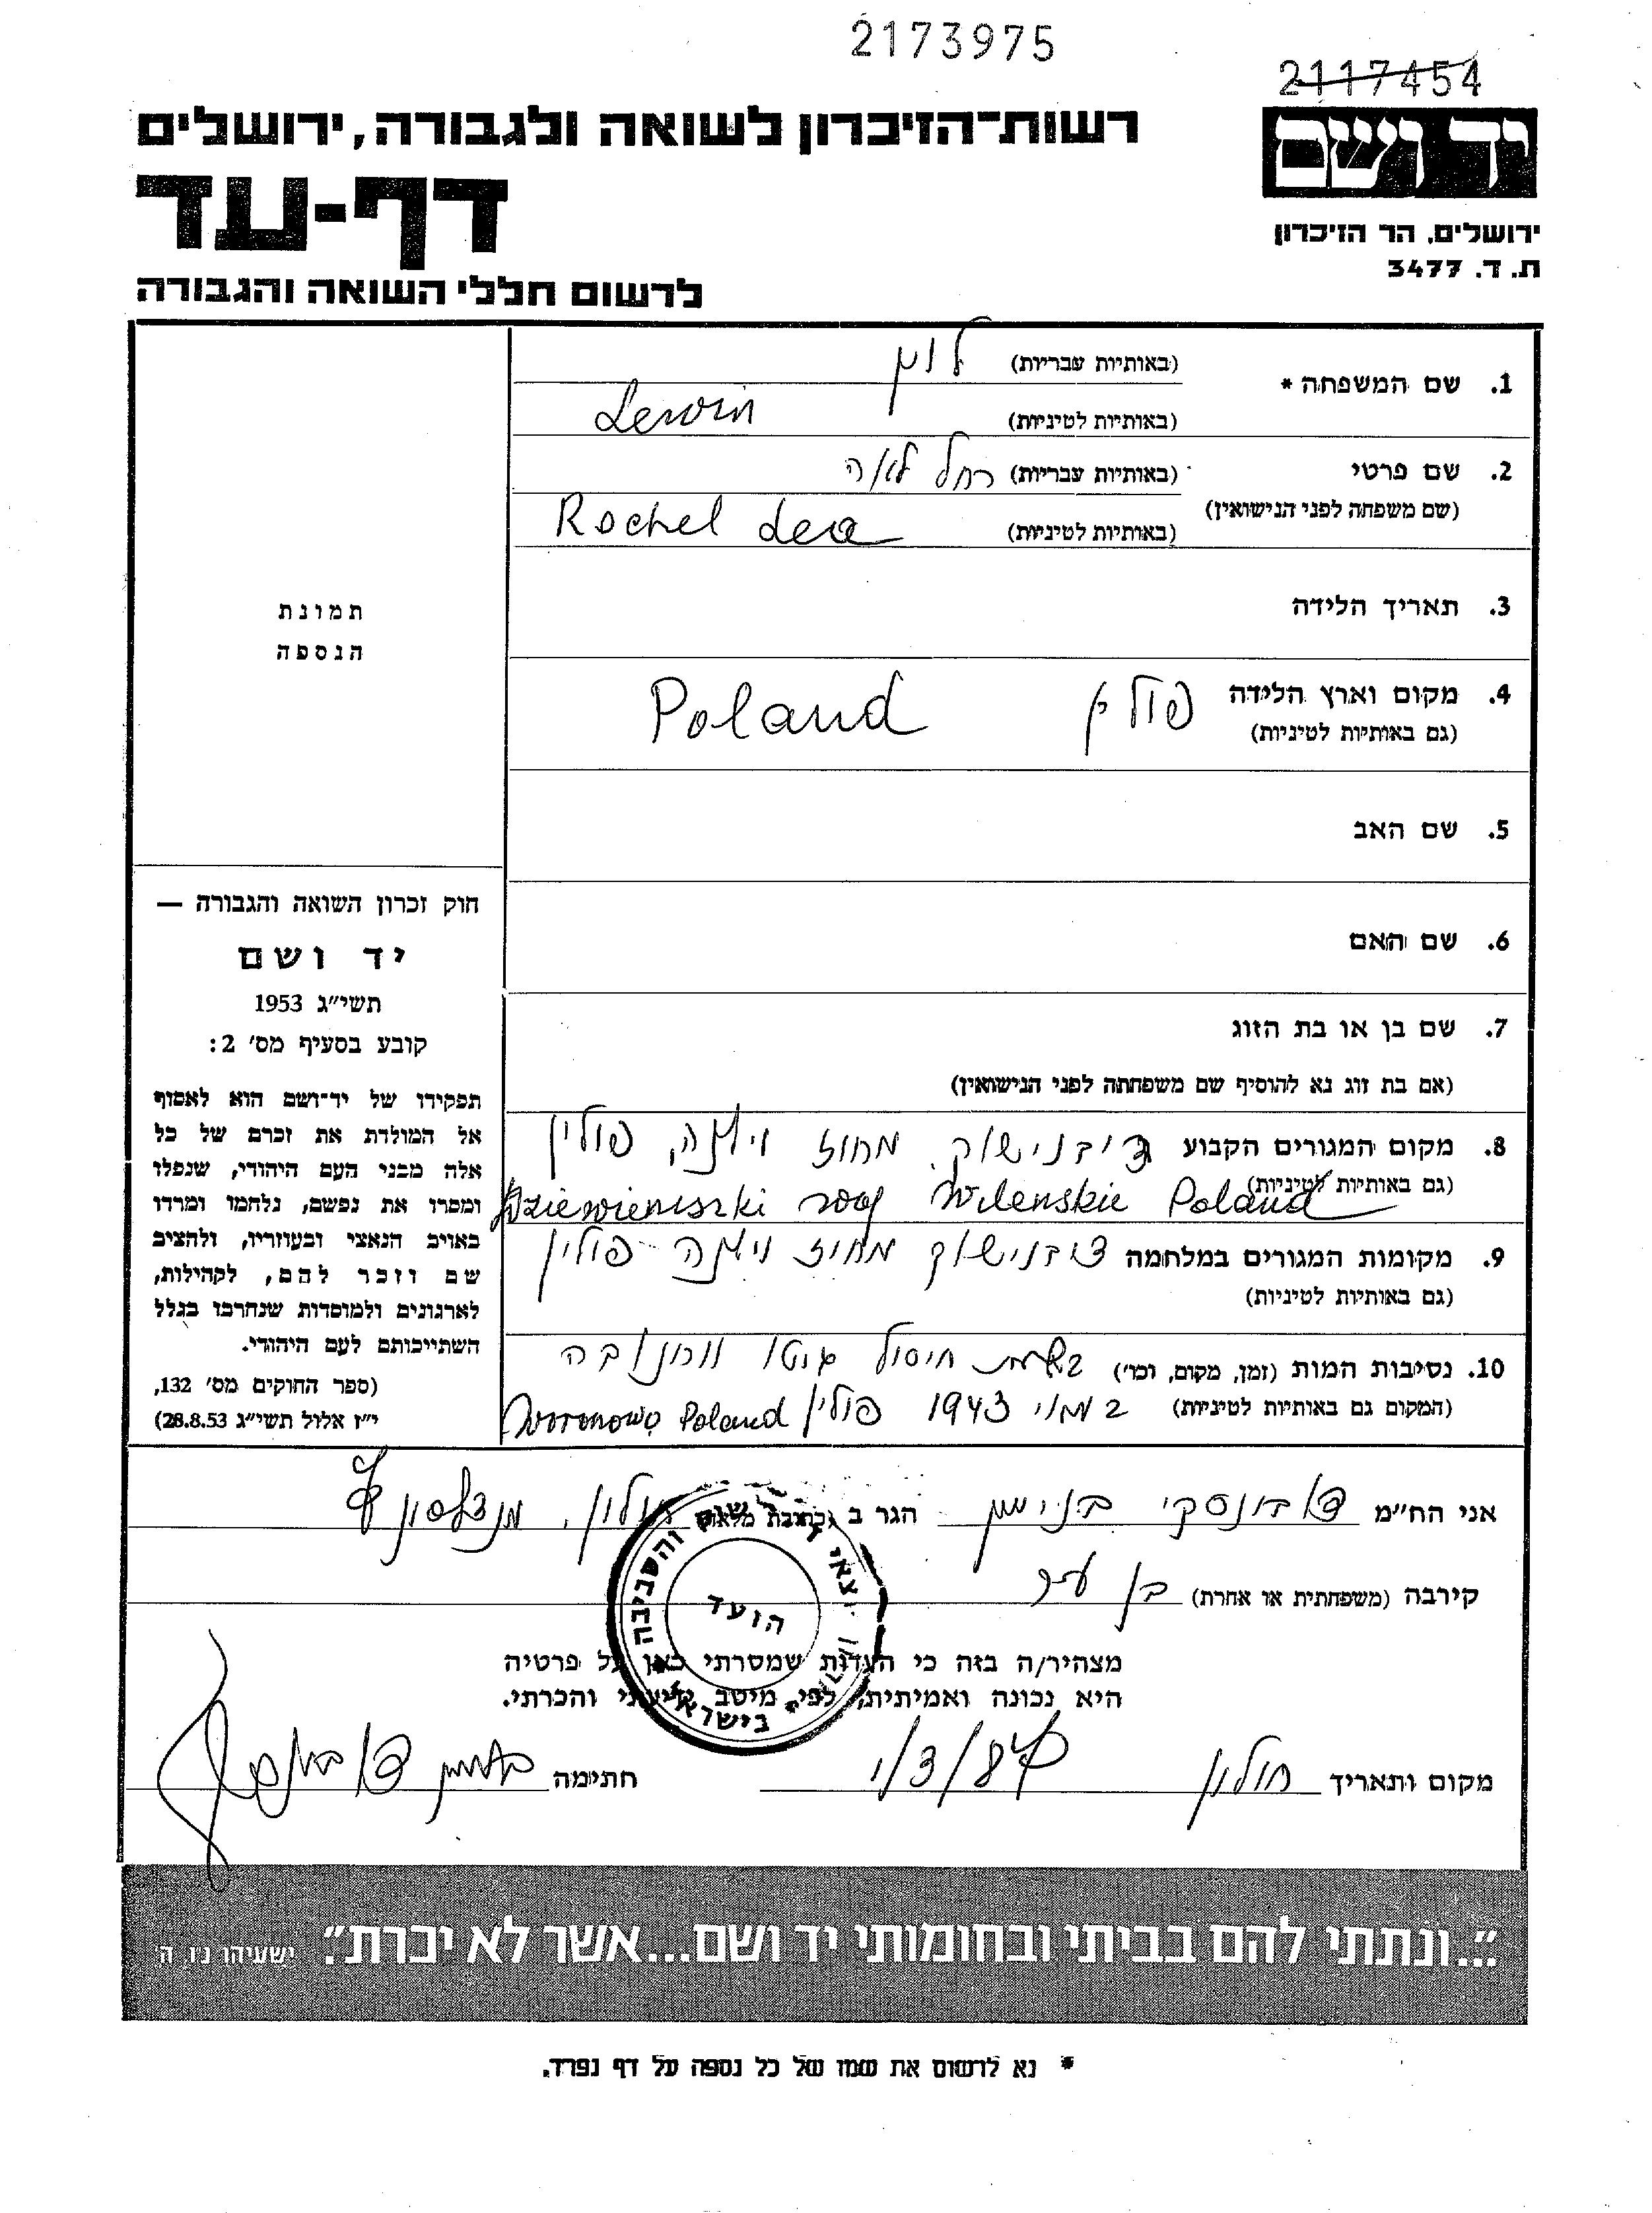 2173975
2117454
יד ושם
ירושלים, הר הזיכרון
ת. ד. 3477
רשות־הזיכרון לשואה ולגבורה, ירושלים
דף-עד
לרשום חללי השואה והגבורה
1. שם המשפחה * (באותיות עבריות) לוין
(באותיות לטיניות) Lewin
2. שם פרטי (באותיות עבריות) רחל לאה
(שם משפחה לפני הנישואין) (באותיות לטיניות) Rochel Lea
3. תאריך הלידה
4. מקום וארץ הלידה פולין Poland
(גם באותיות לטיניות)
5. שם האב
6. שם האם
7. שם בן או בת הזוג
(אם בת זוג נא להוסיף שם משפחתה לפני הנישואין)
8. מקום המגורים הקבוע דיבנישוק. מחוז וילנה, פולין
(גם באותיות לטיניות) Dziewieniszki woj Wilenskie Poland
9. מקומות המגורים במלחמה דיבנישוק מחוז וילנה פולין
(גם באותיות לטיניות)
10. נסיבות המות (זמן, מקום, וכו') בשעת חיסול גיטו וורונובה
(המקום גם באותיות לטיניות) במאי 1943 פולין Woronowo Poland
תמונת
הנספה
חוק זכרון השואה והגבורה —
יד ושם
תשי״ג 1953
קובע בסעיף מס׳ 2:
תפקידו של יד־ושם הוא לאסוף
אל המולדת את זכרם של כל
אלה מבני העם היהודי, שנפלו
ומסרו את נפשם, נלחמו ומרדו
באויב הנאצי ובעוזריו, ולהציב
שם וזכר להם, לקהילות,
לארגונים ולמוסדות שנחרבו בגלל
השתייכותם לעם היהודי.
(ספר החוקים מס׳ 132,
י״ז אלול תשי״ג 28.8.53)
אני הח״מ בנימין הגר ב (כתובת מלאה) חולון, מנדלסון
קירבה (משפחתית או אחרת) בן עיר
מצהיר/ה בזה כי העדות שמסרתי כאן על פרטיה
היא נכונה ואמיתית, לפי מיטב ידיעתי והכרתי.
יוצאי והסביבה בישראל
הועד
מקום ותאריך חולון 1/3/84 חתימה
״...ונתתי להם בביתי ובחומותי יד ושם...אשר לא יכרת״. ישעיהו נ״ו, ה׳
* נא לרשום את שמו של כל נספה על דף נפרד.